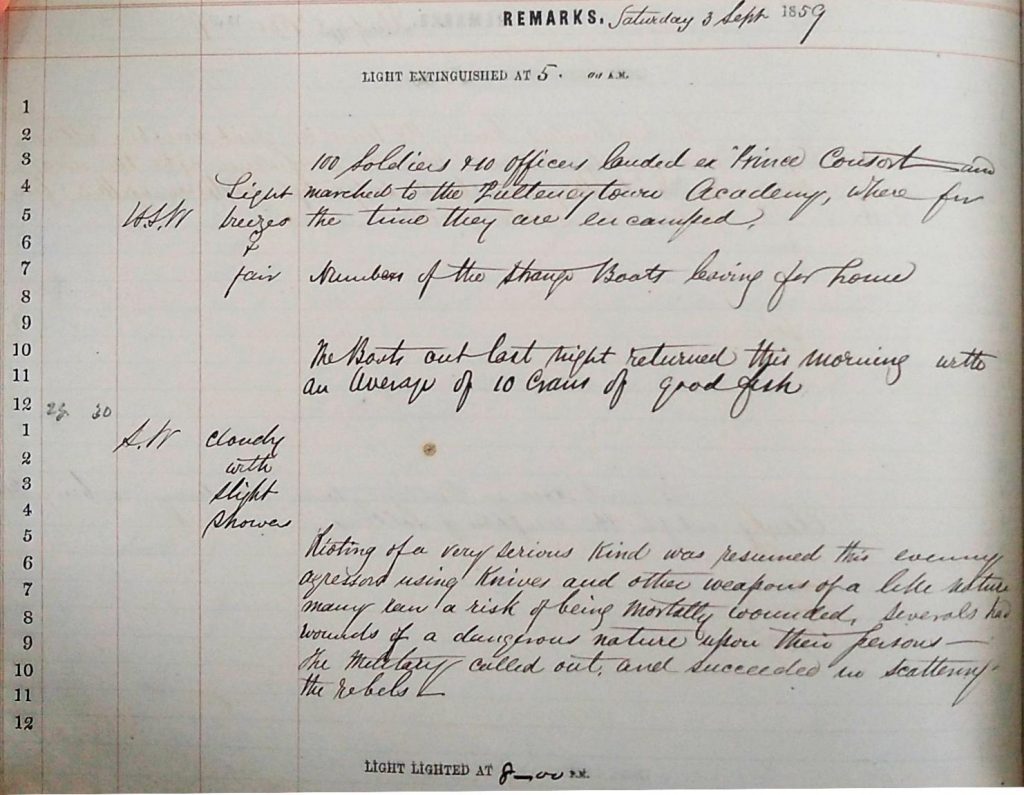 REMARKS. Saturday 3 Sept 1859
LIGHT EXTINGUISHED AT 5. 00 A.M.
1
2
3 100 Soldiers & 10 officers landed ex "Prince Consort and
4 Light marched to the Pulteneytown Academy, where for
5 W.S.W breezes the time they are encamped.
6 &
7 fair Numbers of the Strange Boats leaving for home
8
9
10 The Boats out last night returned this morning with
11 an Average of 10 Crans of good fish
12 29 30
1 S.W Cloudy
2 with
3 slight
4 showers
5 Rioting of a very serious kind was resumed this evening
6 agressors using Knives and other weapons of a like nature
7 many ran a risk of being mortally wounded, severals had
8 wounds of a dangerous nature upon their persons—
9 The Military called out, and succeeded in scattering
10 the rebels—
11
12
LIGHT LIGHTED AT 8—00 P.M.